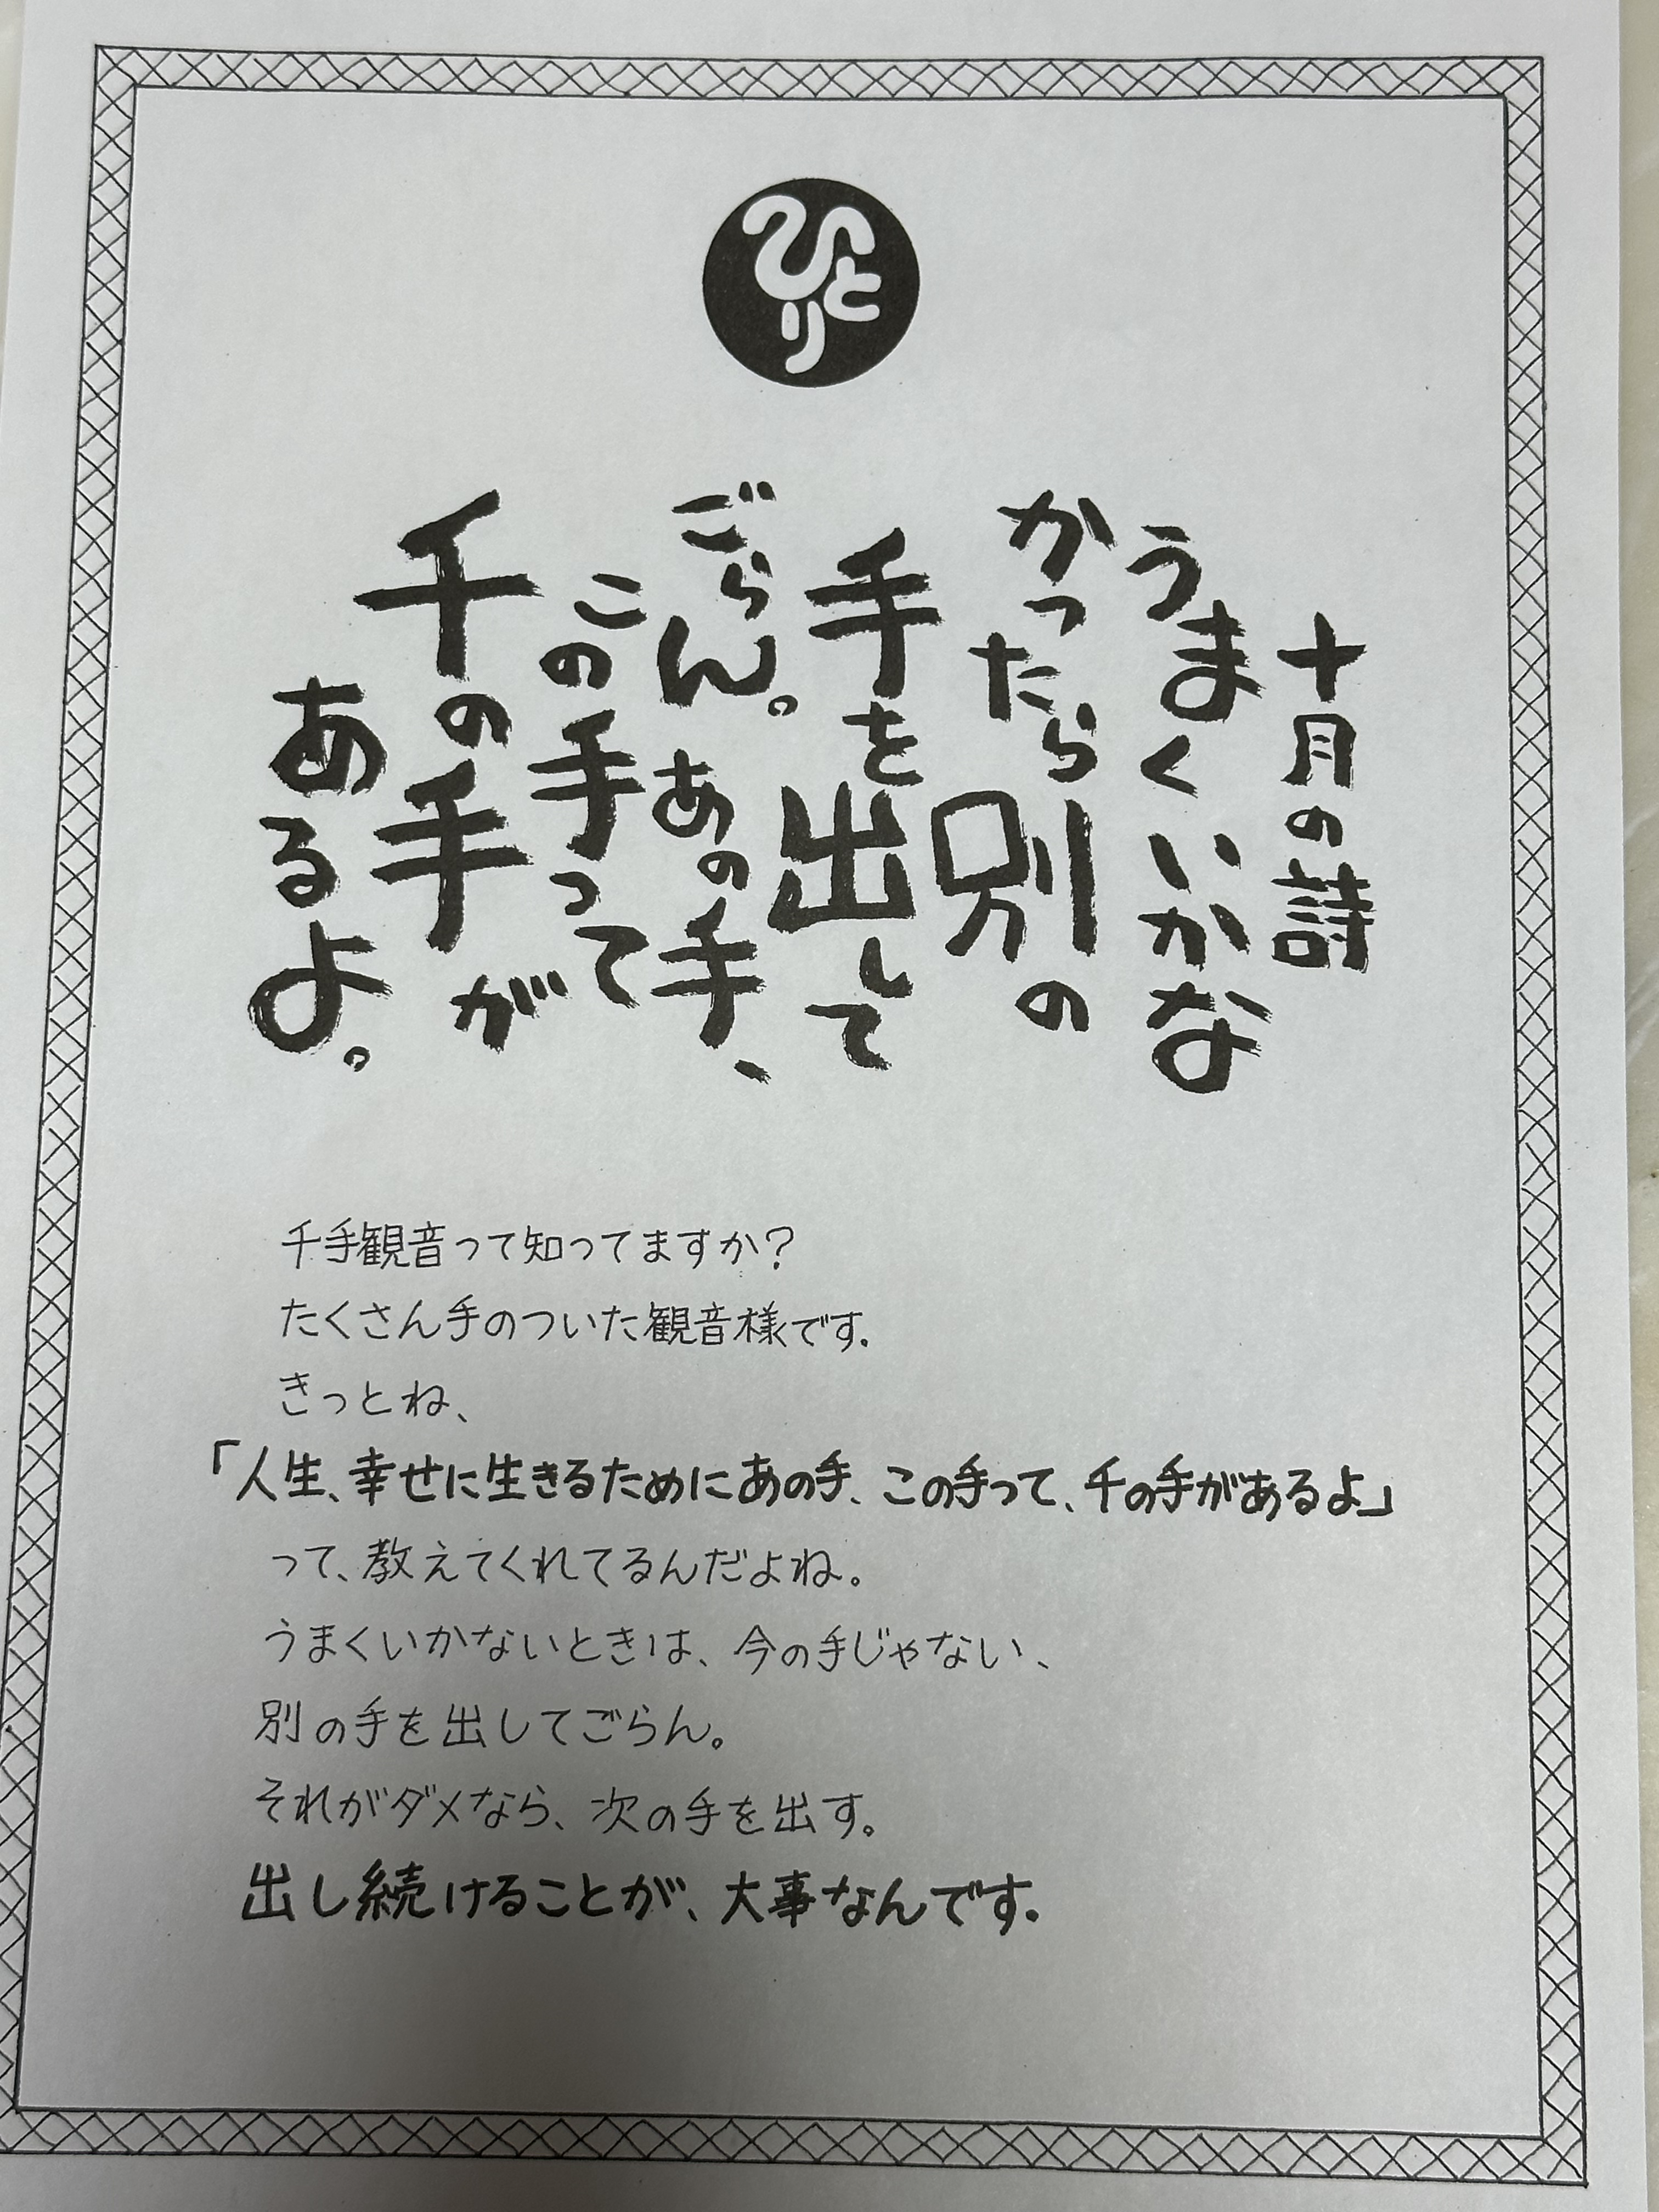 ひとり
十月の詩
うまくいかな
かったら別の
手を出して
ごらん。あの手、
この手って
千の手が
あるよ。
千手観音って知ってますか?
たくさん手のついた観音様です。
きっとね、
「人生、幸せに生きるためにあの手、この手って、千の手があるよ」
って、教えてくれてるんだよね。
うまくいかないときは、今の手じゃない、
別の手を出してごらん。
それがダメなら、次の手を出す。
出し続けることが、大事なんです。